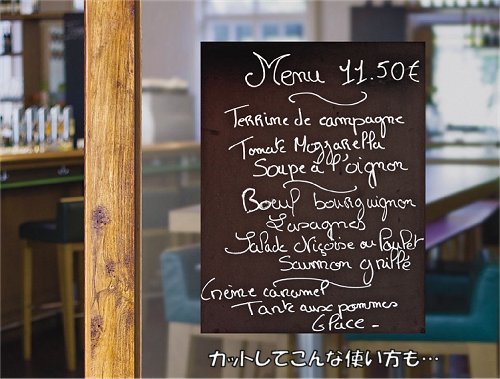 Menu 11.50€
Terrine de campagne
Tomate Mozzarella
Soupe à l'oignon
Bœuf bourguignon
Lasagnes
Salade Niçoise ou Poulet
Saumon grillé
Crème caramel
Tarte aux pommes
Glace -
カットしてこんな使い方も…